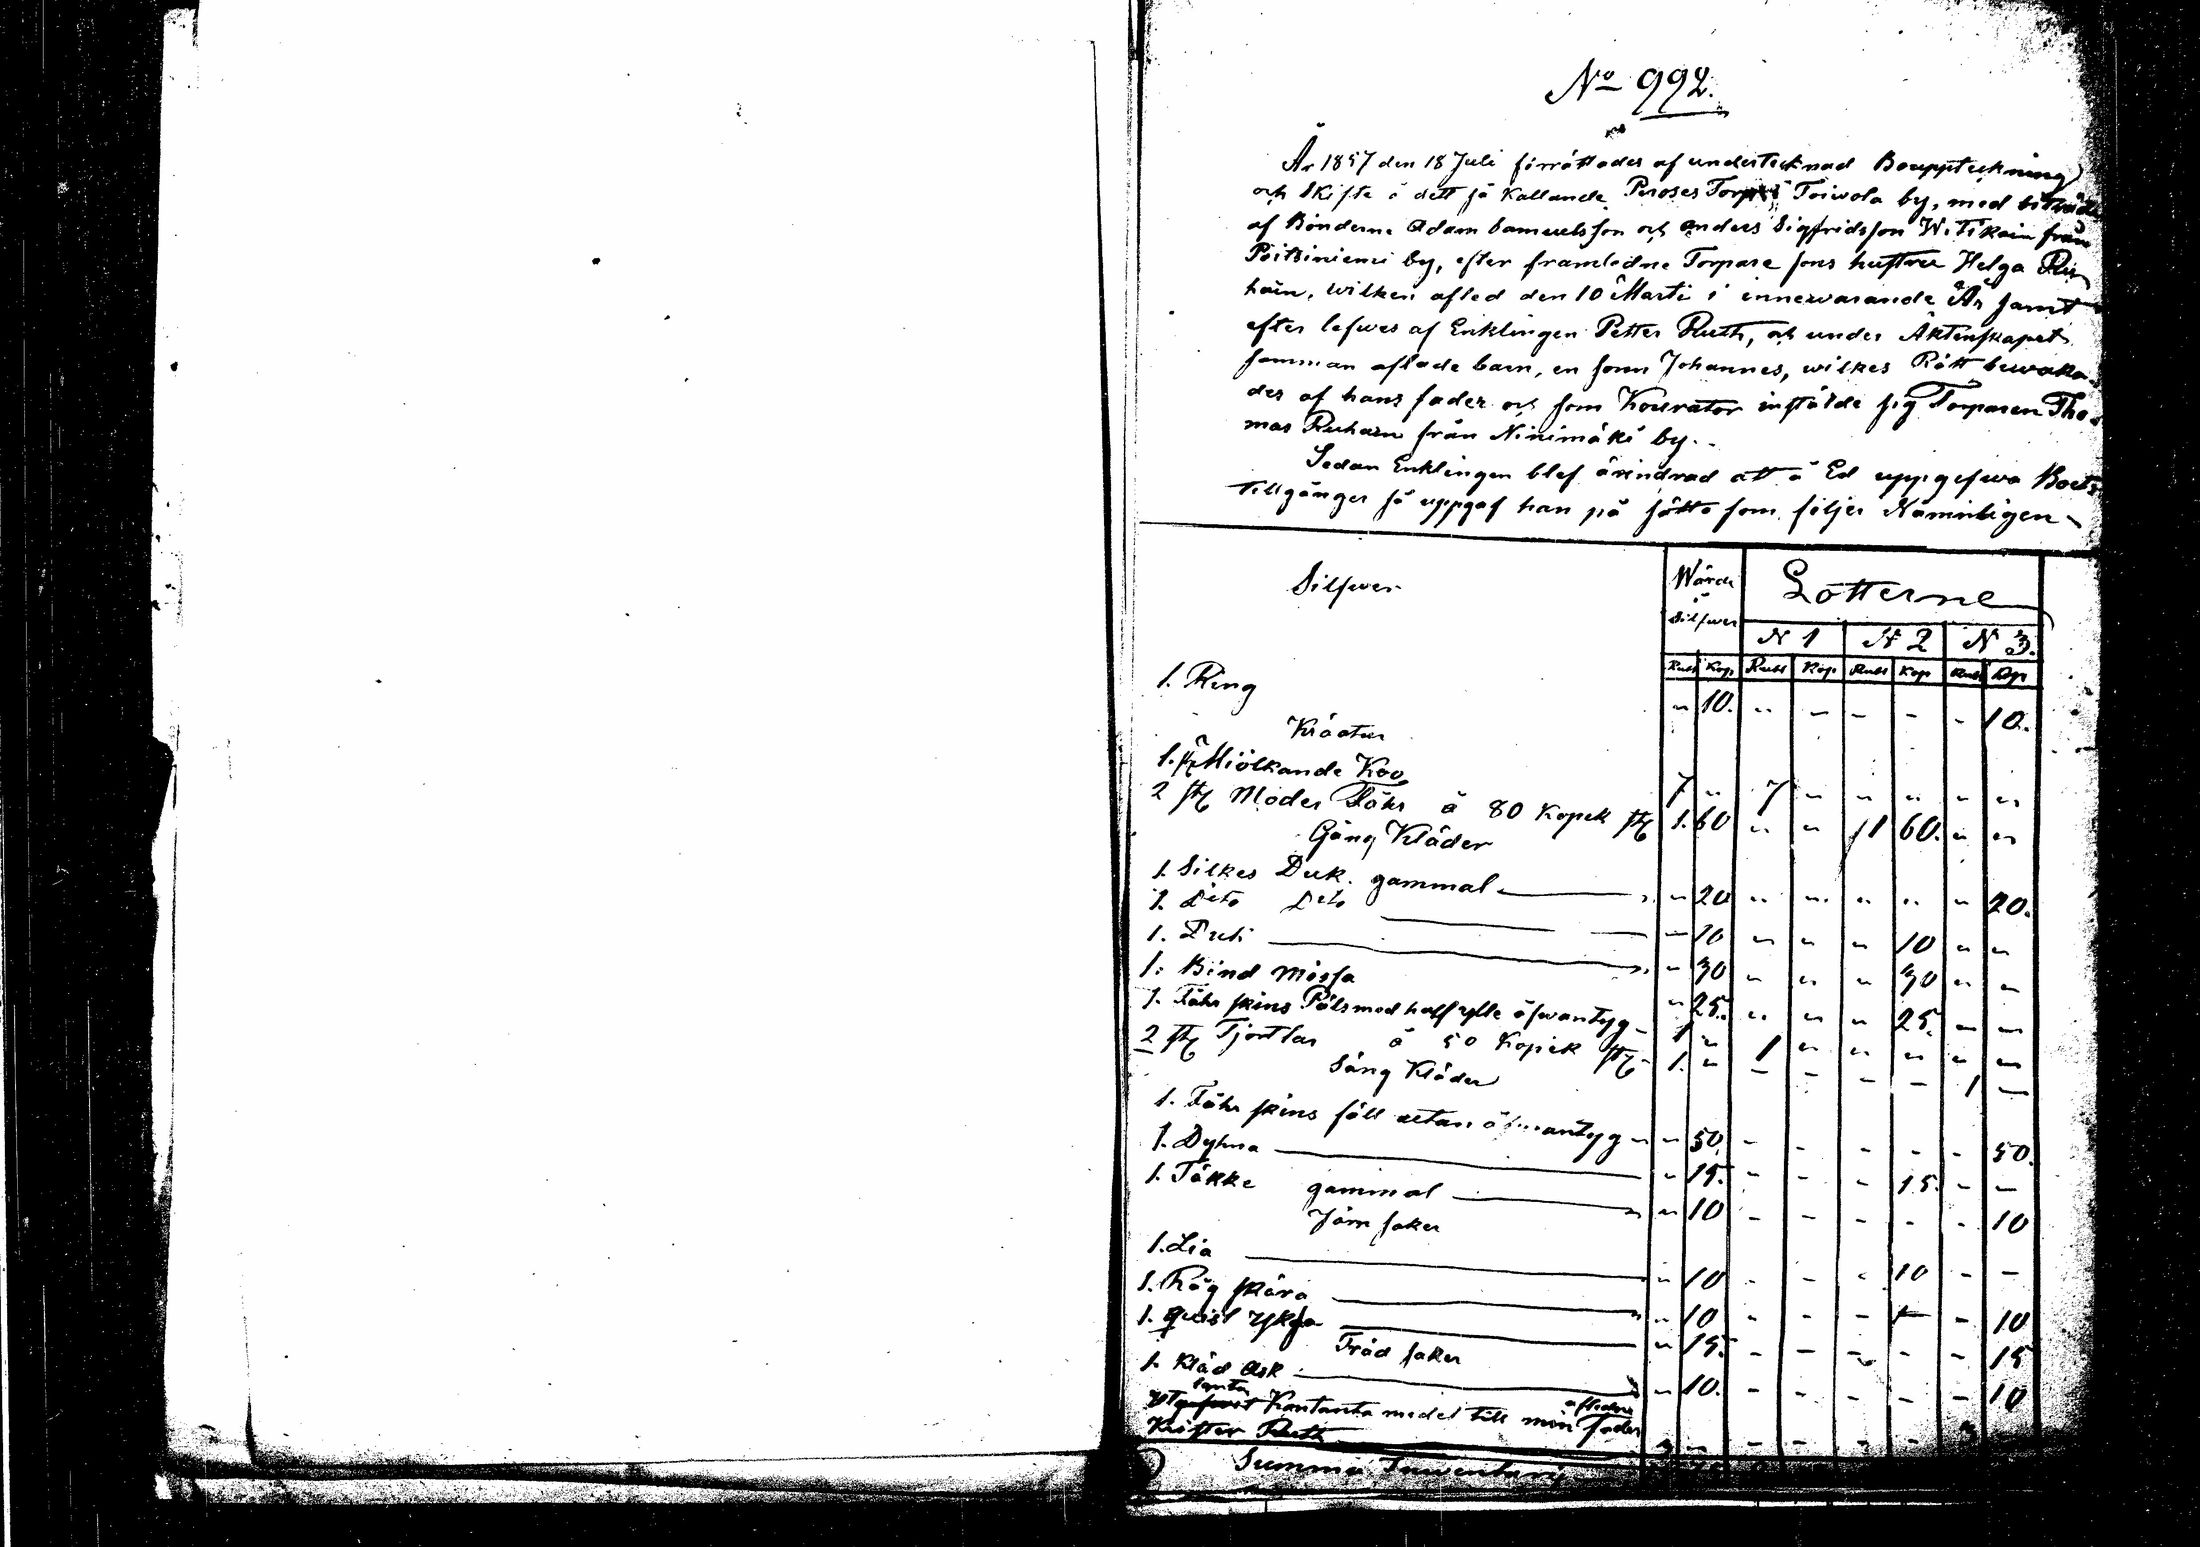 No 992.
År 1857 den 18 Juli förrättades af undertecknad Bouppteckning
och Skifte å dett så kallande Peroses Torp i Toiwola by, med biträde
af Bönderne Adam Samuelsson och Anders Sigfridsson Witikain från
Poitsiniemi by, efter framledne Torpare sons hustru Helga Ru-
hain, wilken afled den 10 Marti i innewarande År samt
efter lefwes af Enklingen Petter Ruth, och under Äktenskapet
samman aflade barn, en sonn Johannes, wilkes Rätt bewaka-
des af hans fader och som Kourator instälde sig Torparen Tho-
mas Ruhain från Ninimäki by.
Sedan Enklingen blef årindrad att å Ed uppgefwa Boets
tillgånger så uppgaf han på sätto som följer Nämnligen
Silfwer Wärde i Silfwer Lotterne
N 1 N 2 N 3.
Rubl Kop Rubl Kop Rubl Kop Rubl Kop
1. Ring " 10. " - - - - 10.
Kräatur
1. st Miölkande Koo 7 " 7 " " " " "
2 st Moder Fåhr å 80 Kopek st 1. 60 " " 1 60. " "
Gång Kläder
1. Silkes Duk. gammal " 20 " " " " " 20.
1. Dito Dito " 10 " " " 10 " "
1. Dito " 30 " " " 30 " "
1. Bind Mössa " 25. " " " 25. " "
1. Fåhr skins Päls med half ylle öfwantyg 1 " 1 " " " " "
2 st Tjortlar å 50 Kopek st 1. " - - - - 1 -
Säng Kläder
1. Fåhr skins fäll utan öfwantyg " 50. - - - - - 50.
1. Dyhna " 15. - - - 15. - -
1. Täkke gammal " 10 - - - - - 10
Järn saker
1. Lia " 10 - - - 10 - -
1. Råg skära " 10 - - - - - 10
1. Quist Yksa " 15. - - - - - 15
Träd saker
1. Kläd Ask " 10. - - - - - 10
Kontanta medel till min aflidne Fader
Ruth " " - - - - "
Summa Inwentari